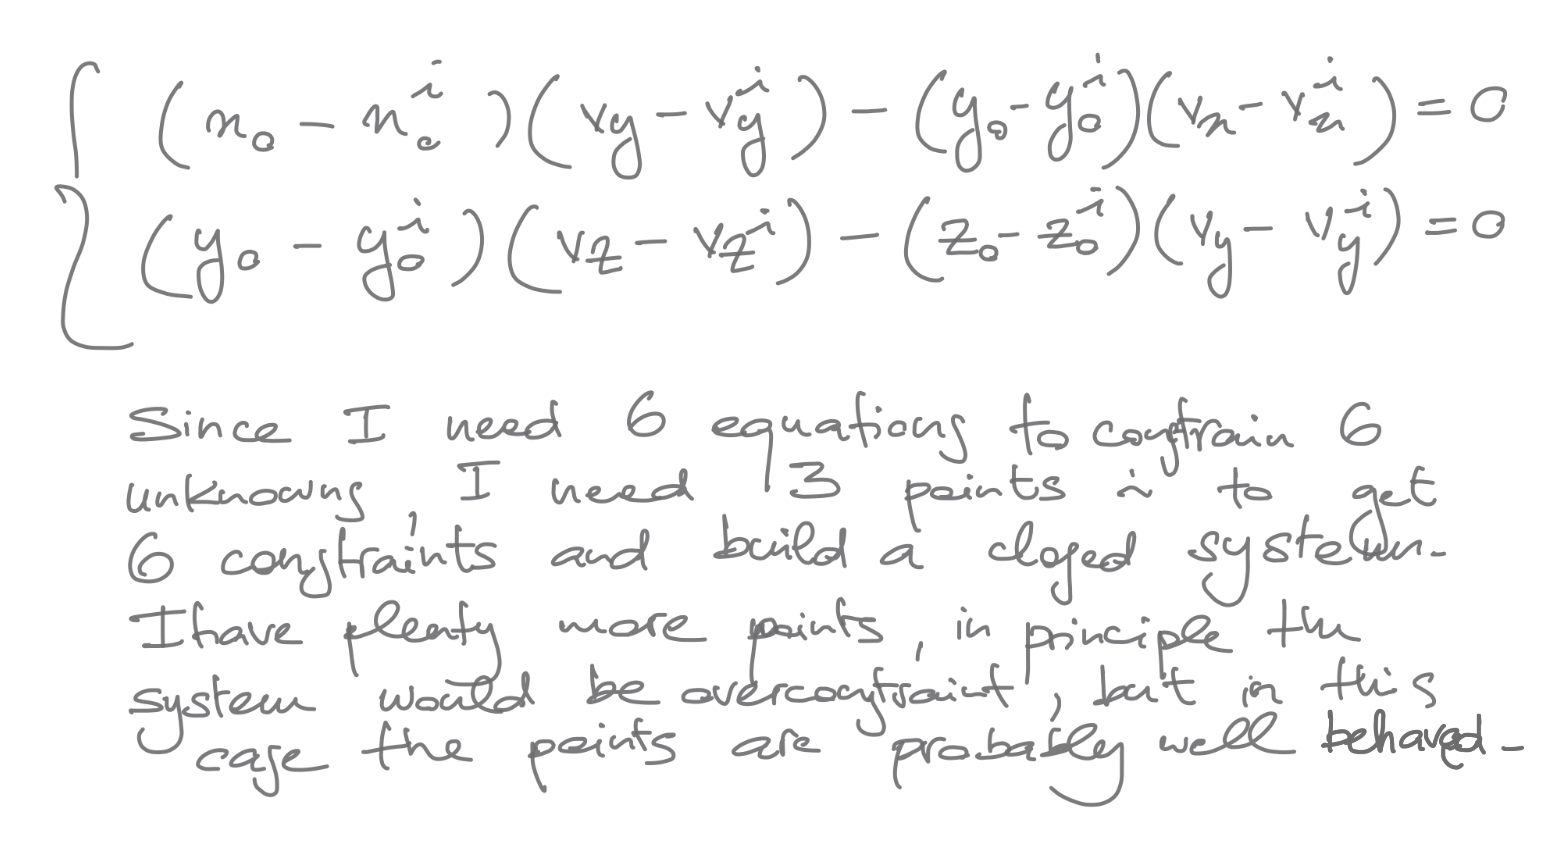 (x₀ - x₀ⁱ)(vy - vyⁱ) - (y₀ - y₀ⁱ)(vx - vxⁱ) = 0
(y₀ - y₀ⁱ)(vz - vzⁱ) - (z₀ - z₀ⁱ)(vy - vyⁱ) = 0
Since I need 6 equations to constrain 6
unknowns, I need 3 points i to get
6 constraints and build a closed system.
I have plenty more points, in principle the
system would be overconstraint, but in this
case the points are probably well behaved.